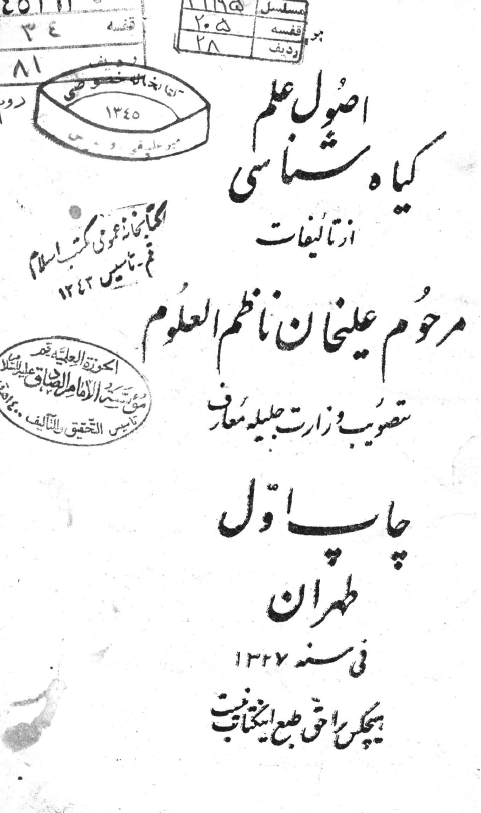 مسلسل
قفسه ۲۰۵
ردیف ۲۸
قفسه ۳۴
ردیف ۸۱
کتابخانه خصوصی
۱۳۴۵
اصُول علم
گیاه شناسی
از تألیفات
مرحُوم علیخان ناظم العلُوم
بتصویب وزارت جلیله معارف
چاپ اوّل
طهران
فی سنه ۱۳۲۷
هیچکس را حقّ طبع اینکتاب نیست
کتابخانهٔ عمومی مکتب اسلام
قم - تاسیس ۱۳۴۳
الحوزة العلمیه قم
مؤسسة الامام الصادق علیه السلام
تاسیس التحقیق والتألیف